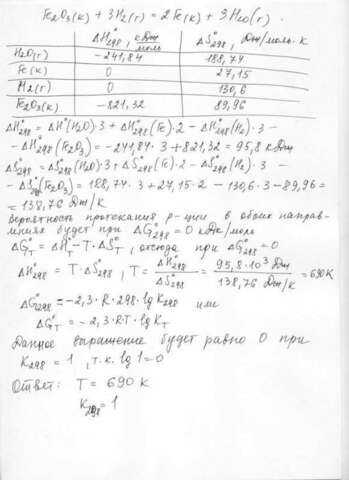 Fe₂O₃(к) + 3H₂(г) = 2Fe(к) + 3H₂O(г).
ΔH°₂₉₈, кДж/моль ΔS°₂₉₈, Дж/моль·К
H₂O(г) -241,84 188,74
Fe(к) 0 27,15
H₂(г) 0 130,6
Fe₂O₃(к) -821,32 89,96
ΔH°₂₉₈ = ΔH°(H₂O)·3 + ΔH°₂₉₈(Fe)·2 - ΔH°₂₉₈(H₂)·3 -
- ΔH°₂₉₈(Fe₂O₃) = -241,84·3 + 821,32 = 95,8 кДж
ΔS°₂₉₈ = ΔS°₂₉₈(H₂O)·3 + ΔS°₂₉₈(Fe)·2 - ΔS°₂₉₈(H₂)·3 -
- ΔS°₂₉₈(Fe₂O₃) = 188,74·3 + 27,15·2 - 130,6·3 - 89,96 =
= 138,76 Дж/К
Вероятность протекания р-ции в обоих направ-
лениях будет при ΔG°₂₉₈ = 0 кДж/моль
ΔG°T = ΔH° - T·ΔS°T, отсюда при ΔG°₂₉₈ = 0
ΔH°₂₉₈ = T·ΔS°₂₉₈, T = ΔH°₂₉₈/ΔS°₂₉₈ = 95,8·10³ Дж/138,76 Дж/К = 690К
ΔG°₂₉₈ = -2,3·R·298·lg K₂₉₈ или
ΔG°T = -2,3·R·T·lg KT
Данное выражение будет равно 0 при
K₂₉₈ = 1, т.к. lg 1 = 0
Ответ: T = 690 К
K₂₉₈ = 1